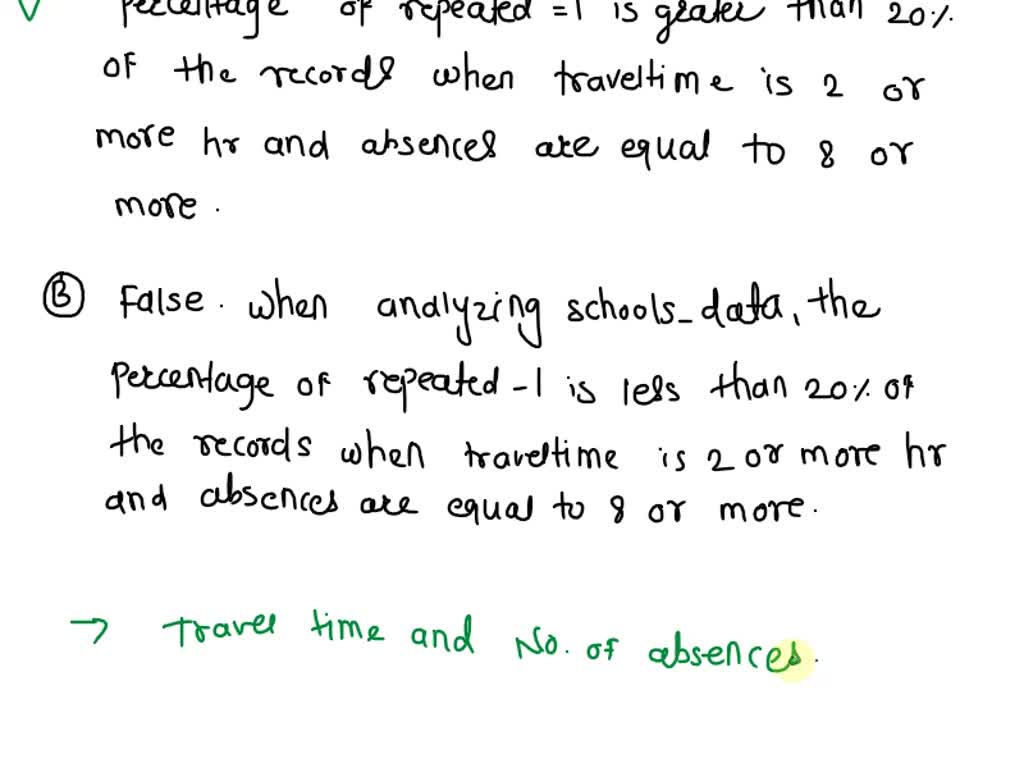 percentage of repeated =1 is greater than 20%
of the records when traveltime is 2 or
more hr and absences are equal to 8 or
more.
B False. when analyzing schools_data, the
percentage of repeated -1 is less than 20% of
the records when traveltime is 2 or more hr
and absences are equal to 8 or more.
→ Travel time and No. of absences.